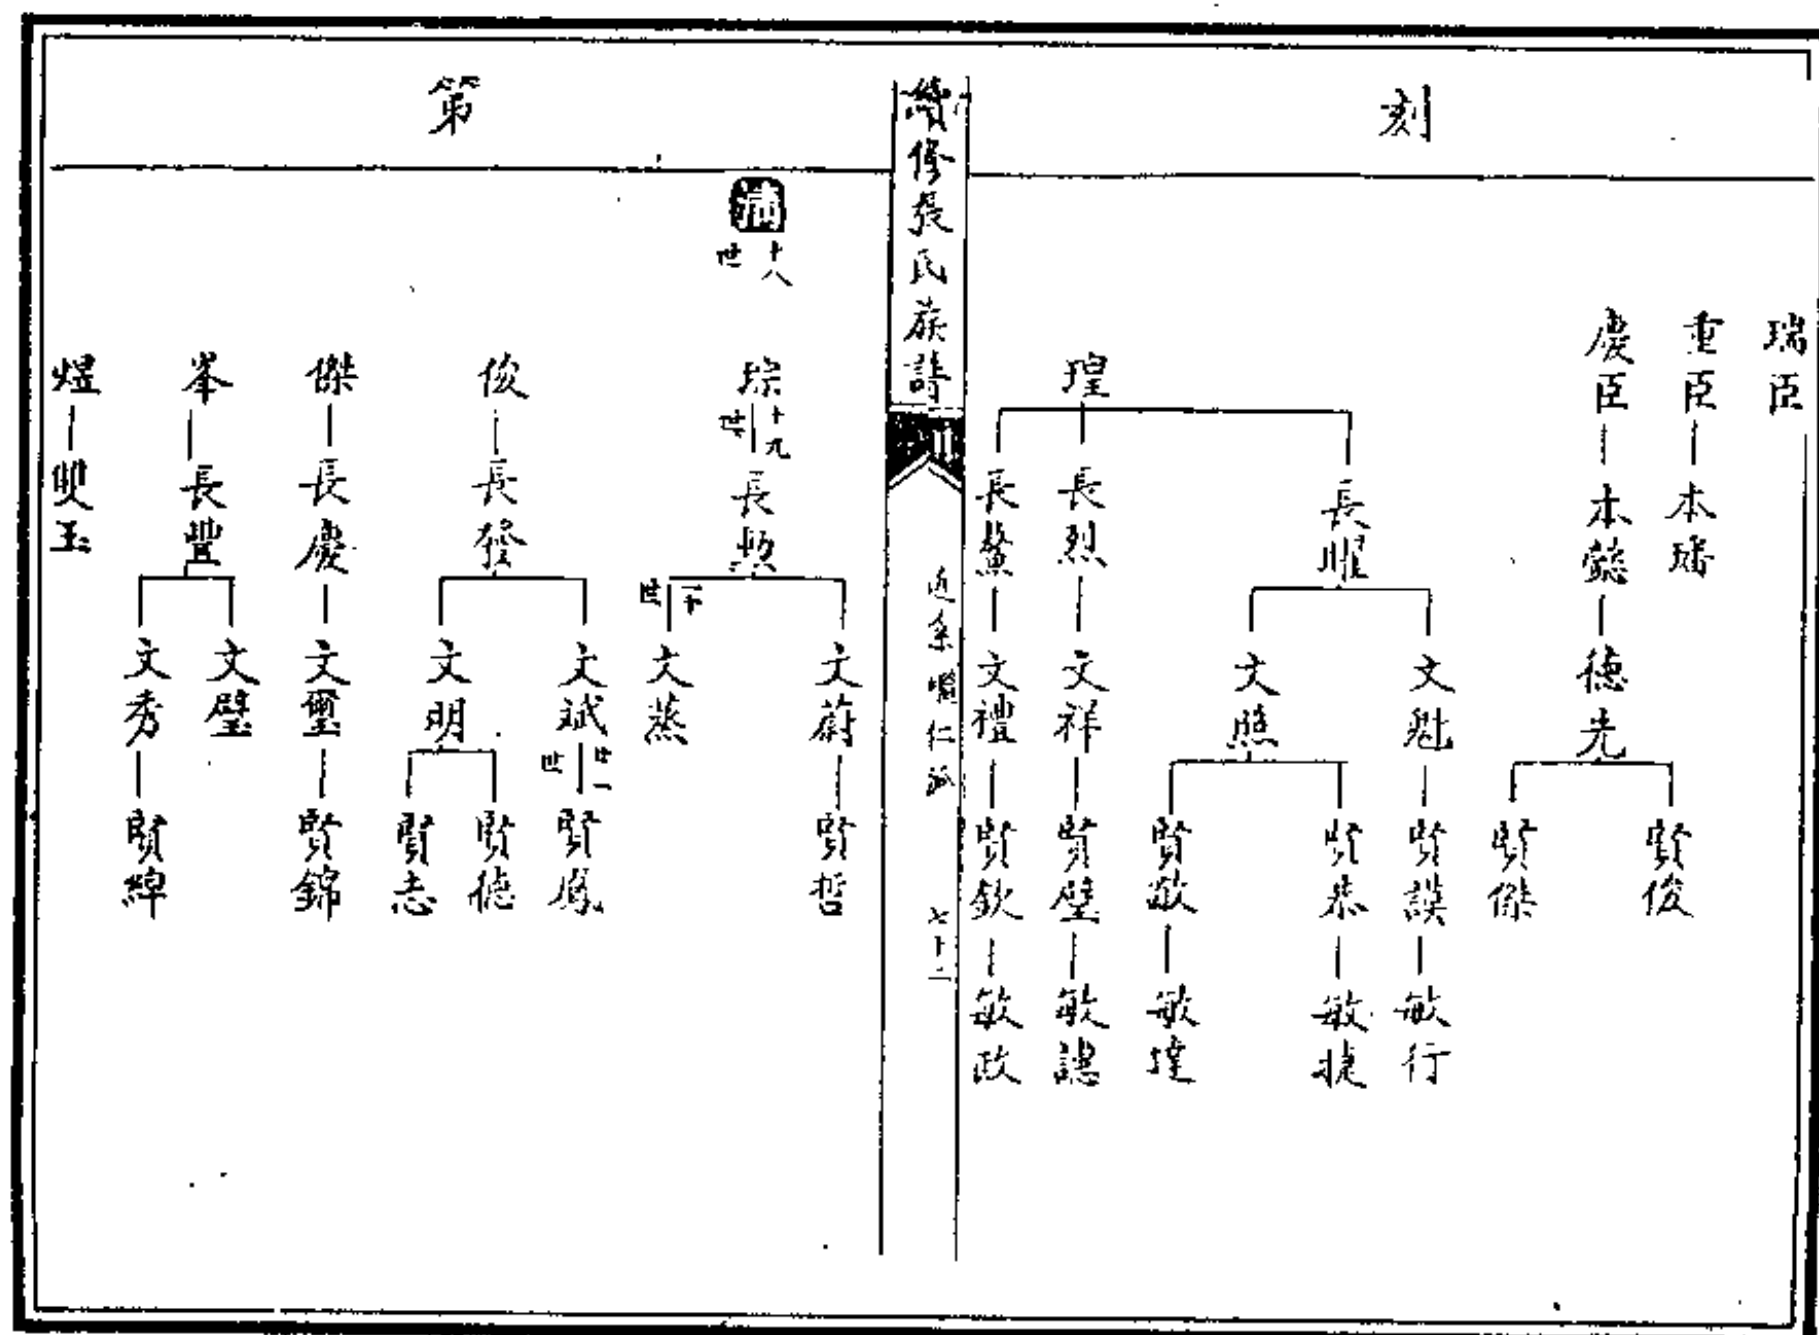 刻
瑞臣
重臣
本璠
慶臣
本懿
德光
賢俊
賢傑
瑝
長耀
文魁
賢謨
敏行
文照
賢恭
敏捷
賢敬
敏達
長烈
文祥
賢璧
敏聰
長鰲
文禮
賢欽
敏政
續修張氏族譜
仁派
七十二
第
十八世
琮
十九世
長熙
文蔚
賢哲
二十世
文蒸
俊
長發
文斌
廿一世
賢鳳
文明
賢德
賢志
傑
長慶
文璽
賢錦
峯
長豐
文璧
文秀
賢緯
煜
雙玉